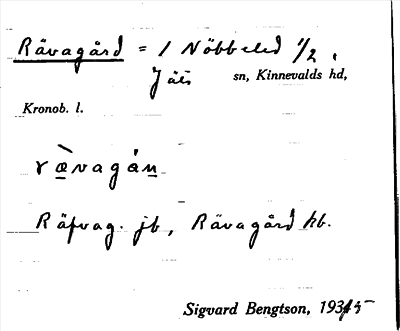 Rävagård = 1 Nöbbeled 1/2 i
Jäts sn, Kinnevalds hd,
Kronob. l.
rævagán
Räfvag. jb, Rävagård kb.
Sigvard Bengtson, 1935